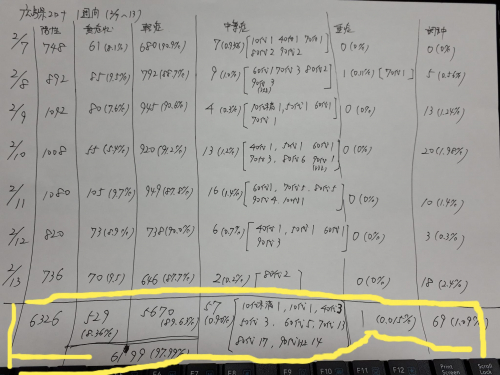 広島県コロナ 1週間 (2/7~13)
陽性 無症状 軽症 中等症 重症 調査中
2/7 748 61 (8.1%) 680 (90.9%) 7 (0.9%) [10代1 40代1 70代1
80代2 90代2 0 (0%) 0 (0%)
2/8 892 85 (9.5%) 792 (88.7%) 9 (1.0%) [60代1 70代3 80代2
90代3 1 (0.11%) [70代1] 5 (0.56%)
2/9 1092 80 (7.6%) 945 (90.6%) 4 (0.3%) [10歳未満1, 50代1 60代1
70代1 0 (0%) 13 (1.24%)
2/10 1008 55 (5.4%) 920 (91.2%) 13 (1.2%) [40代1, 50代1 60代1
70代3, 80代6 90代1 0 (0%) 20 (1.98%)
2/11 1080 105 (9.7%) 949 (87.8%) 16 (1.4%) [60代1, 70代5, 80代5
90代4 100代1 0 (0%) 10 (1.4%)
2/12 820 73 (8.9%) 738 (90.0%) 6 (0.7%) [40代1, 50代1 60代1
90代3 0 (0%) 3 (0.3%)
2/13 736 70 (9.5) 646 (87.7%) 2 (0.2%) [80代2 0 (0%) 18 (2.4%)
6326 529 5670 57 [10歳未満1, 10代1, 40代3
(8.36%) (89.63%) (0.90%) 50代3, 60代5, 70代13 1 (0.015%) 69 (1.09%)
80代17, 90代以上14
6199 (97.99%)
F6 F7 F8 F9 F10 F11 F12 Print Screen Scroll Lock